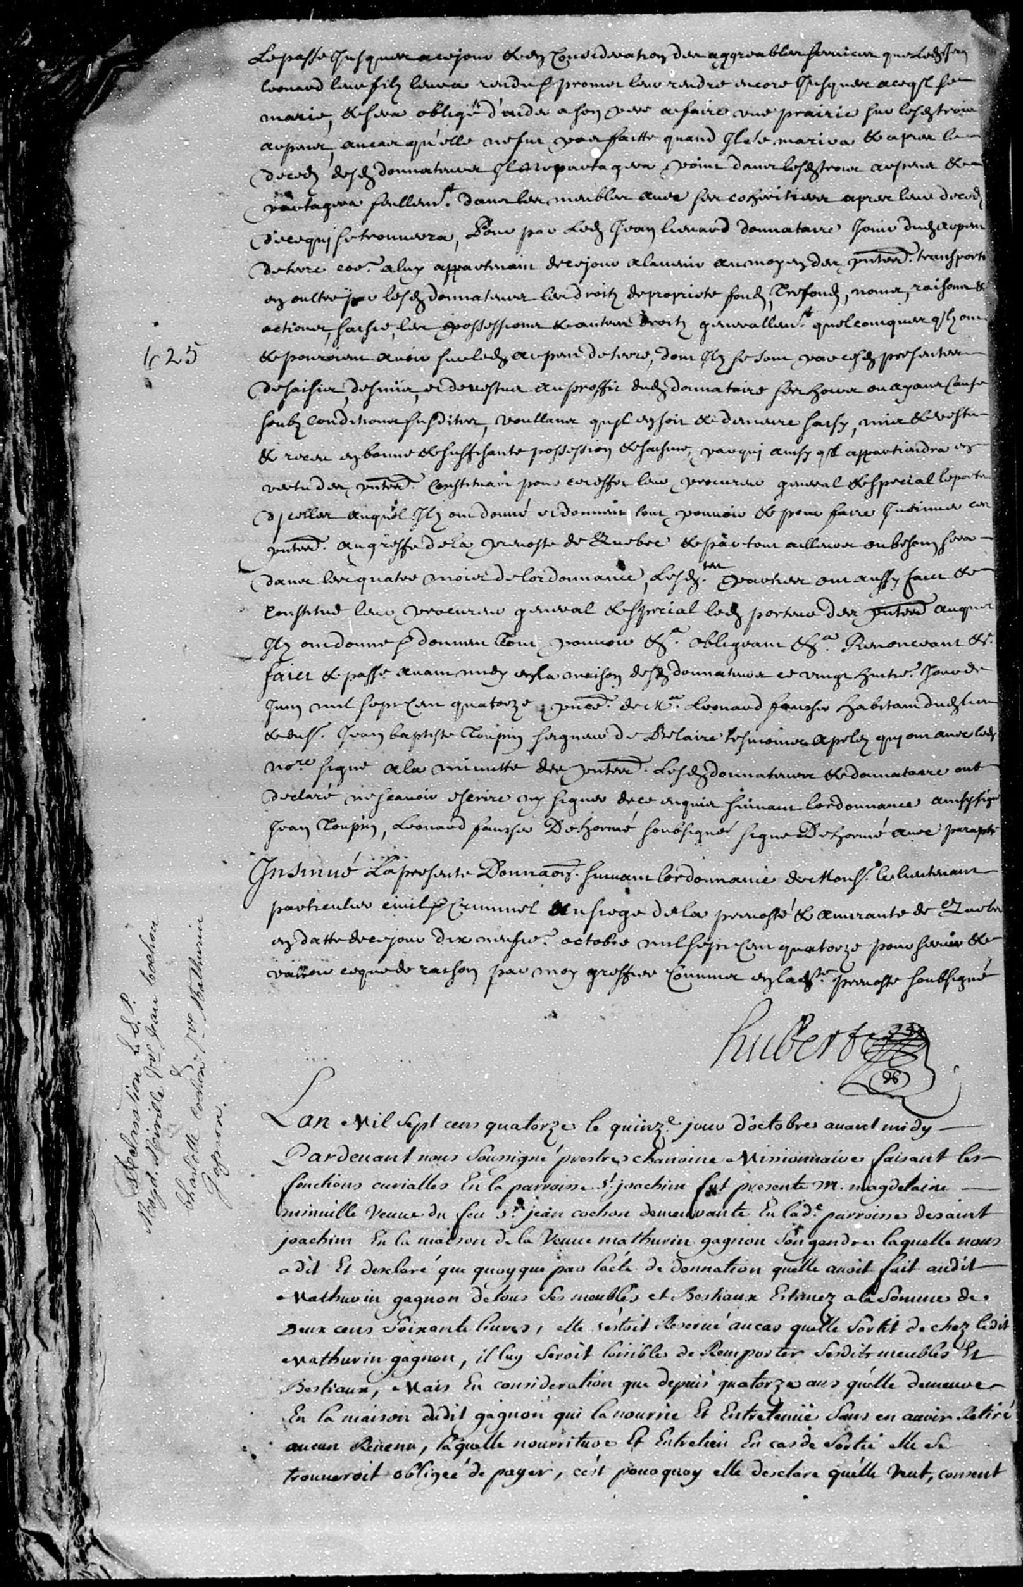 Le passé jusques a ce jour & en Consideration des aggreables services que led Jean
Leonard leur filz leur a rendus & promet leur rendre encore jusques a ce qu'il se
marie, & sera obligé d'aider a son pere a faire une prairie sur lesd trois
arpens, en cas qu'elle ne fut pas faitte quand Il se mariera & apres le
deceds desd donnateurs Il ne partagera point dans lesd trois arpens &
partagera seullemt. dans les meubles avec ses coheritiers apres leur deceds
de ce qui se trouvera, Pour par led Jean Lienard donnataire Jouir dud arpent
de terre comme a luy appartenant de ce jour a l'avenir au moyen des pntes. transporté
en oultre par lesd donnateurs les droits de proprieté fondz, Trefondz, noms, raisons &
actions, saisine, les possessions & autres droits generallemt. quelconques qu'ilz ont
& pouroient avoir sur led arpent de terre, dont Ilz se sont par cesd presentes
desaisis, desmis, et devestus au proffit dud donnataire ses hoirs ou ayans cause
soubz Conditions susdittes, voullans qu'il en soit & demeure saisy, mis & vestu
& receu en bonne & suffisante possession & saisine, par qui ainsy qu'il appartiendra en
vertu des pntes. Constituant pour ce effet leur procureur general & special le porteur
d'jcelles auquel Ilz ont donné et donnent tout pouvoir & pour faire Insinuer ces
pntes. au greffe de la prevosté de Quebec & partout ailleurs ou besoin sera
dans les quatre mois de l'ordonnance, lesd. parties ont aussy fait &
constitué leur procureur general & special led porteur des pntes auquel
Ilz ont donné & donnent Tout pouvoir &a. obligeant &a. Renonceant &a.
fait & passé avant midy en la maison desd donnateurs ce vingt huite. Jour de
Juin mil sept cent quatorze, Leonard habitant dud lieu
& du Sr. Jean baptiste Toupin seigneur de Belaire tesmoins apelez qui ont avec led
nore. signé a la minutte des pntes. Lesd donnateurs & donnataire ont
declaré ne scavoir escrire ny signer de ce enquis suivant l'ordonnance ainsy signé
Jean Toupin, Leonard Dehorné soubsigné signé Dehorné avec paraphe
Insinué La presente Donnaon. suivant l'ordonnance de Monsr. le lieutenant
particulier civil & Criminel au siege de la prevosté & amirauté de Quebec
en datte de ce jour dix neufve. octobre mil sept cent quatorze pour servir &
valloir ce que de raison par moy greffier Commis en lade. prevosté soubsigné
hubert
425
Declaration de D.e
Magd. Miville Vve Jean Cochon
&
Charlotte Cochon Vve Mathurin
Gagnon.
Lan Mil sept cens quatorze le quinze. jour d'octobre avant midy
Pardevant nous soussigné prestre chanoine Missionnaire faisant les
fonctions curialles En la parroisse St. joachim fut presente M. magdelaine
minville Veuve du feu Sr. jean cochon demeurante En lade. parroisse de saint
joachim En la maison de la Veuve mathurin gagnon son gendre laquelle nous
a dit Et desclaré que quoyque par l'acte de donnation quelle avoit fait audit
Mathurin gagnon de tous ses meubles et Bestiaux Estimez a la sommes de
Deux cens soixante livres, elle s'estoit Reservé au cas quelle sortit de chez ledit
Mathurin gagnon, il luy seroit loisible de Remporter sesdits meubles Et
Bestiaux, Mais En consideration que depuis quatorze ans quélle demeure
En la maison dudit gagnon qui la nourrie Et Entretenüe sans en avoir Retiré
aucun Revenu, laquelle nourriture Et Entretien En cas de sortie elle se
trouveroit obligeé de payer, cest pourquoy elle desclare quélle veut, consent